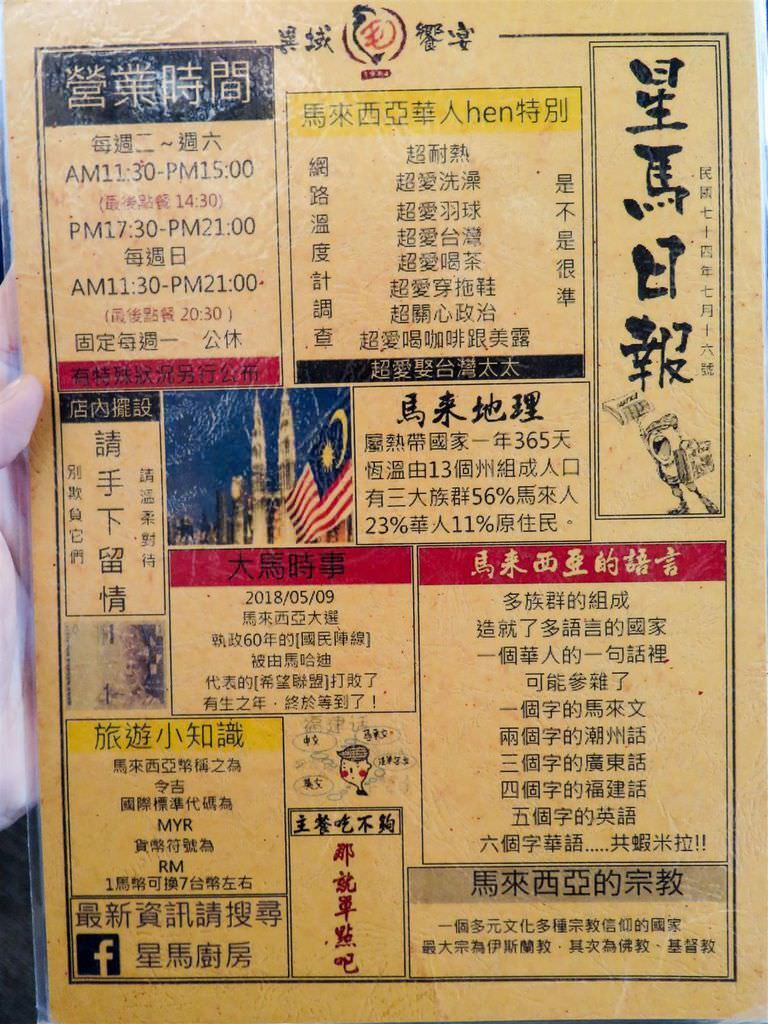 異域
饗宴
1984
星馬日報
民國七十四年七月十六號
營業時間
每週二～週六
AM11:30-PM15:00
(最後點餐 14:30)
PM17:30-PM21:00
每週日
AM11:30-PM21:00
(最後點餐 20:30 )
固定每週一 公休
有特殊狀況另行公布
馬來西亞華人hen特別
網路溫度計調查
超耐熱
超愛洗澡
超愛羽球
超愛台灣
超愛喝茶
超愛穿拖鞋
超關心政治
超愛喝咖啡跟美露
是不是很準
超愛娶台灣太太
店內擺設
請溫柔對待
請手下留情
別欺負它們
馬来地理
屬熱帶國家一年365天
恆溫由13個州組成人口
有三大族群56%馬來人
23%華人11%原住民。
大馬時事
2018/05/09
馬來西亞大選
執政60年的[國民陣線]
被由馬哈迪
代表的[希望聯盟]打敗了
有生之年，終於等到了！
馬来西亞的語言
多族群的組成
造就了多語言的國家
一個華人的一句話裡
可能參雜了
一個字的馬來文
兩個字的潮州話
三個字的廣東話
四個字的福建話
五個字的英語
六個字華語.....共蝦米拉!!
旅遊小知識
馬來西亞幣稱之為
令吉
國際標準代碼為
MYR
貨幣符號為
RM
1馬幣可換7台幣左右
福建話
中文
馬來文
英文
主餐吃不夠
那就單點吧
最新資訊請搜尋
f 星馬廚房
馬來西亞的宗教
一個多元文化多種宗教信仰的國家
最大宗為伊斯蘭教，其次為佛教、基督教